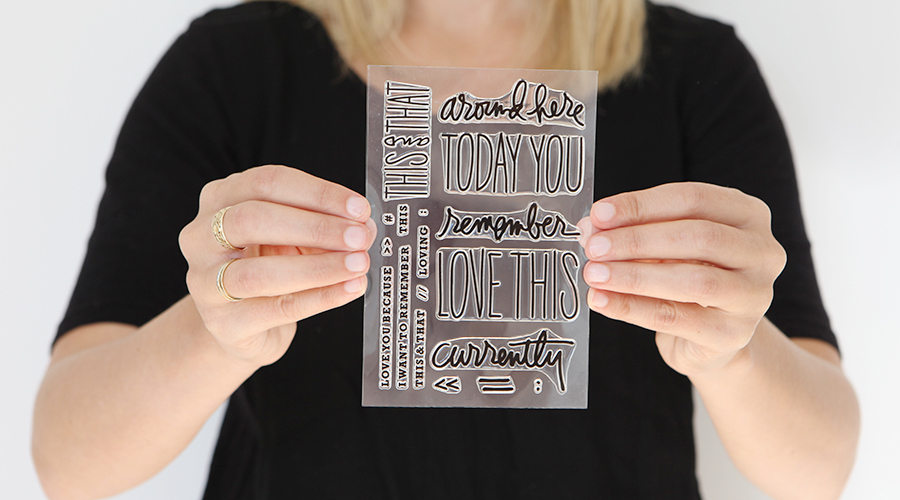 around here
TODAY YOU
remember
LOVE THIS
currently
THIS and THAT
LOVE YOU BECAUSE >> #
I WANT TO REMEMBER THIS
THIS & THAT // LOVING :